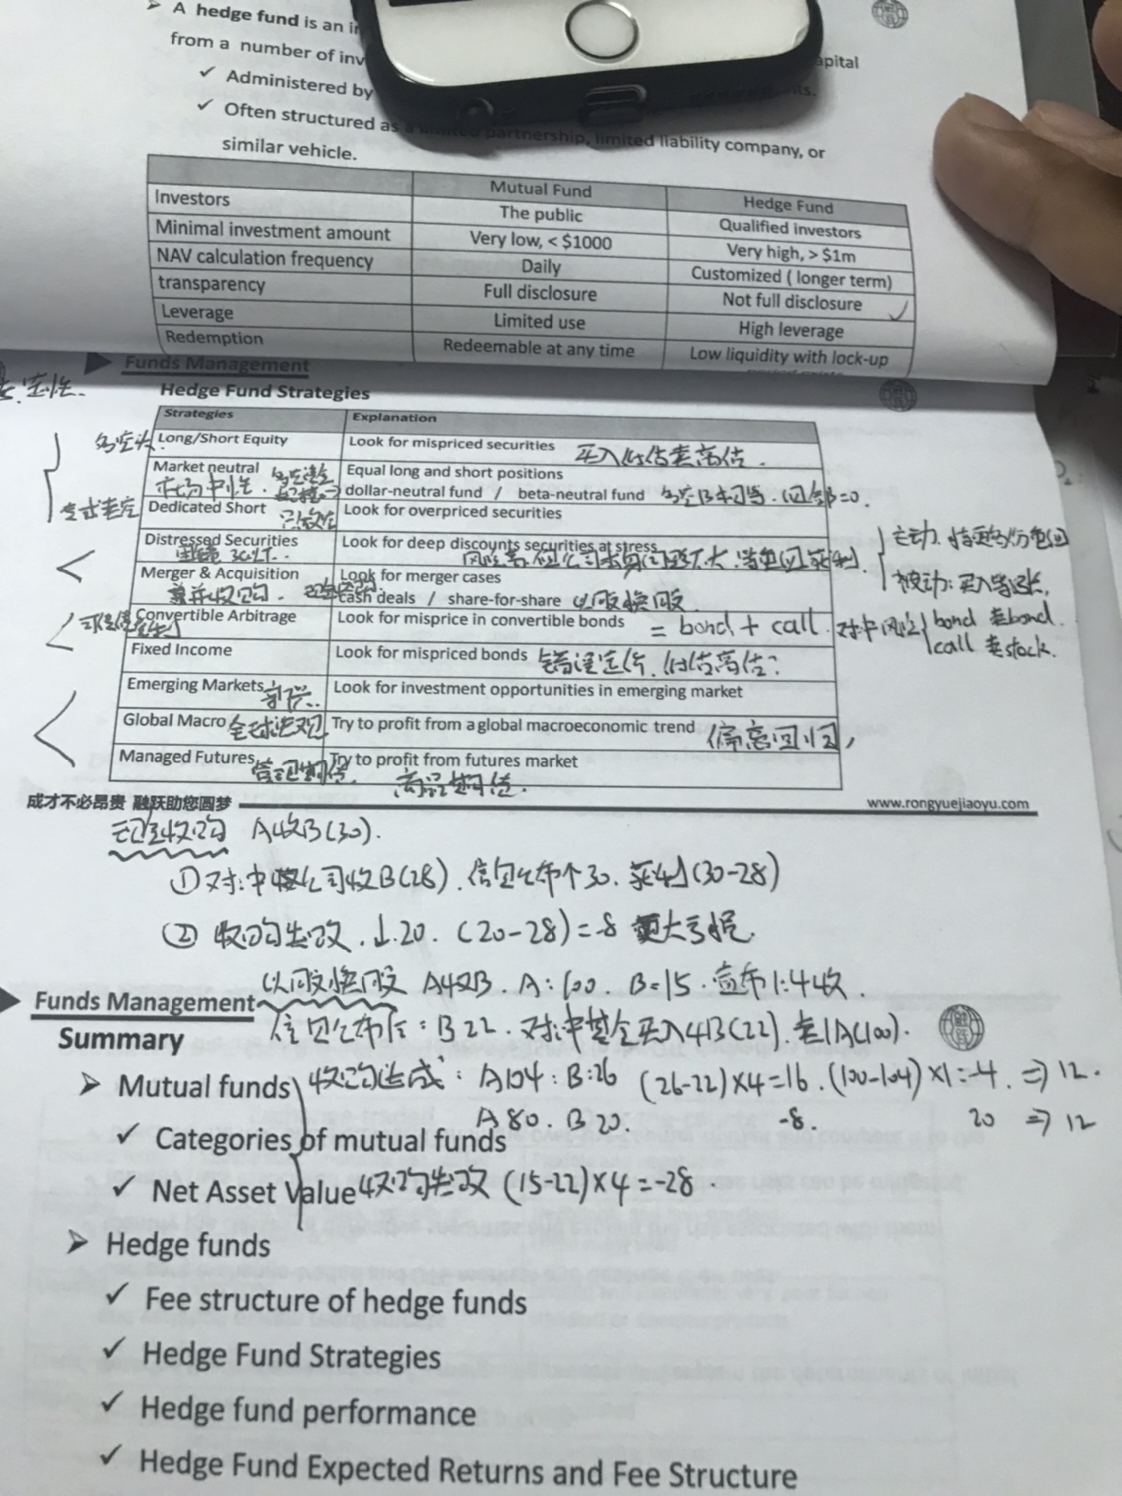 A hedge fund is an
from a number of
apital
Administered by
Often structured as a limited partnership, limited liability company, or
similar vehicle.
Mutual Fund Hedge Fund
Investors The public Qualified investors
Minimal investment amount Very low, < $1000 Very high, > $1m
NAV calculation frequency Daily Customized ( longer term)
transparency Full disclosure Not full disclosure
Leverage Limited use High leverage
Redemption Redeemable at any time Low liquidity with lock-up
Funds Management
Hedge Fund Strategies
Strategies Explanation
多空头 Long/Short Equity Look for mispriced securities 买入低估卖高估.
Market neutral Equal long and short positions
市场中性. dollar-neutral fund / beta-neutral fund
Dedicated Short Look for overpriced securities
Distressed Securities Look for deep discounts securities at stress
Merger & Acquisition Look for merger cases
兼并收购. cash deals / share-for-share 以股换股
Convertible Arbitrage Look for misprice in convertible bonds = bond + call. 对冲风险 bond 卖bond.
call 卖stock.
Fixed Income Look for mispriced bonds 错误定价. 低估高估
Emerging Markets Look for investment opportunities in emerging market
Global Macro 全球宏观 Try to profit from a global macroeconomic trend 偏离回归,
Managed Futures Try to profit from futures market
商品期货.
成才不必昂贵 融跃助您圆梦 www.rongyuejiaoyu.com
现金收购 A收B(30).
①对冲公司收B(28). 信息公布个30. 获利(30-28)
② 收购失败. ↓20. (20-28)=-8 更大亏损.
以股换股 A收B. A:100. B=15. 宣布1:4收.
Funds Management
信息公布后: B22. 对冲基金买入4B(22). 卖1A(100).
Summary
Mutual funds 收购达成: A104: B:26 (26-22)×4=16. (100-104)×1=-4. ⇒12.
A80. B20. -8. 20 ⇒12
Categories of mutual funds
Net Asset Value 收购失败 (15-22)×4=-28.
Hedge funds
Fee structure of hedge funds
Hedge Fund Strategies
Hedge fund performance
Hedge Fund Expected Returns and Fee Structure